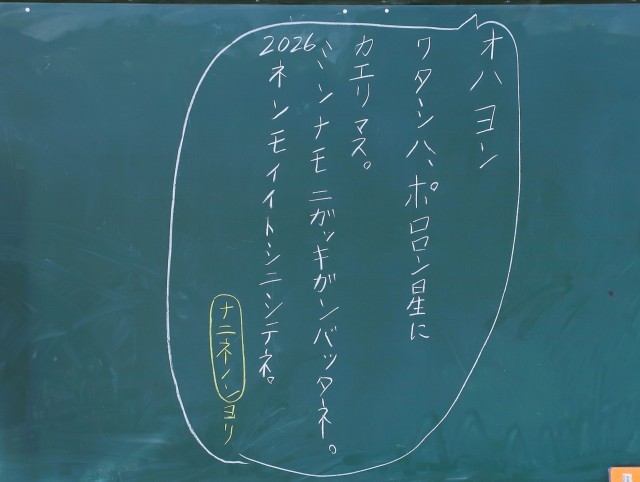 オハヨン
ワタシハ、ポロロン星に
カエリマス。
ミンナモニガッキガンバッタネー。
2026ネンモイイトシニシテネ。
ナニネノンヨリ